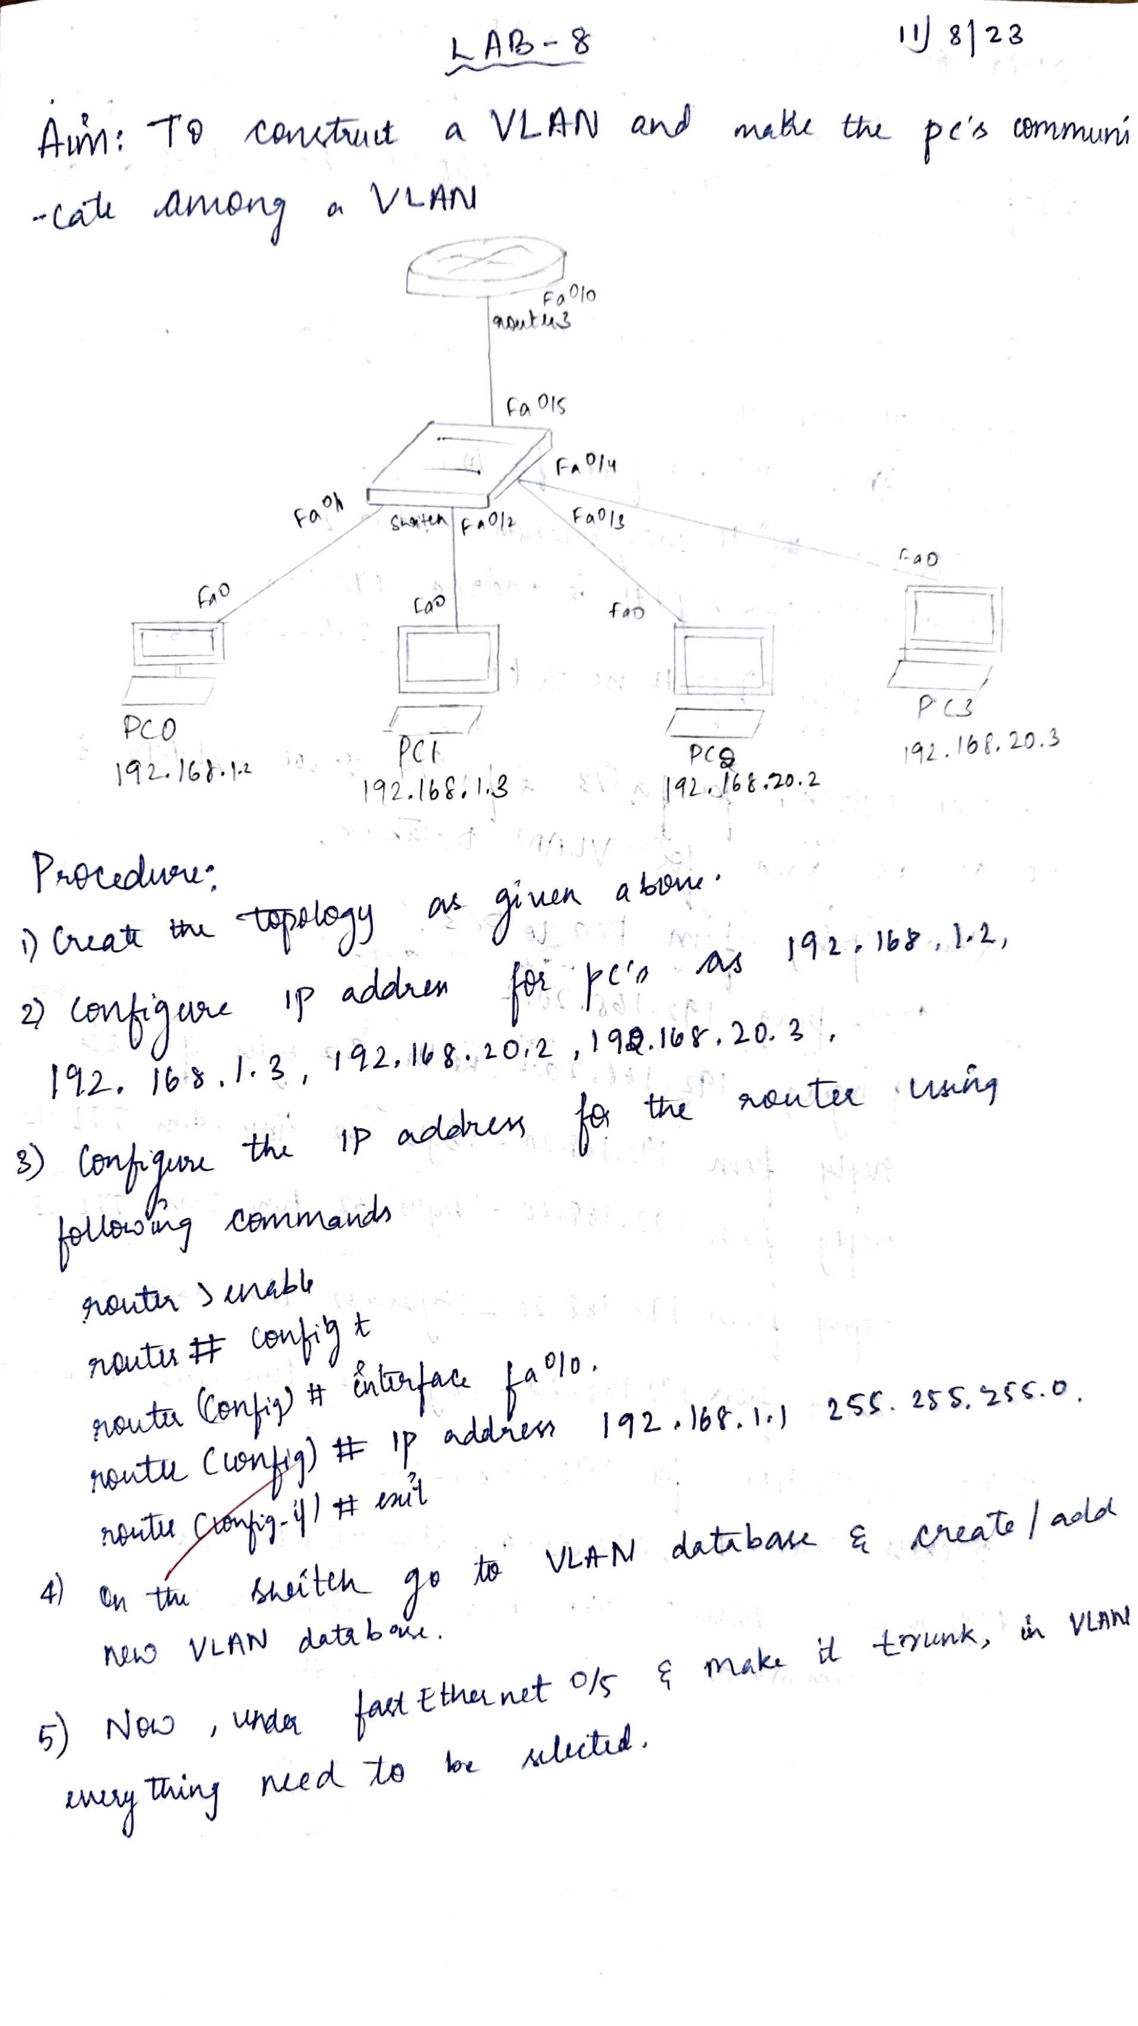 LAB-8
11/8/23
Aim: To construct a VLAN and make the pc's communi
-cate among a VLAN
Fa0/0
router3
Fa0/5
Fa0/4
Fa0/1
Switch
Fa0/2
Fa0/3
Fa0
Fa0
Fa0
Fa0
PC0
192.168.1.2
PC1
192.168.1.3
PC2
192.168.20.2
PC3
192.168.20.3
Procedure:
1) Create the topology as given above.
2) Configure IP address for pc's as 192.168.1.2,
192.168.1.3, 192.168.20.2, 192.168.20.3.
3) Configure the IP address for the router using
following commands
router > enable
router # config t
router (config) # interface fa0/0.
router (config) # ip address 192.168.1.1 255.255.255.0.
router (config-if) # exit
4) On the switch go to VLAN database & create/add
new VLAN database.
5) Now, under fast Ethernet 0/5 & make it trunk, in VLAN
everything need to be selected.